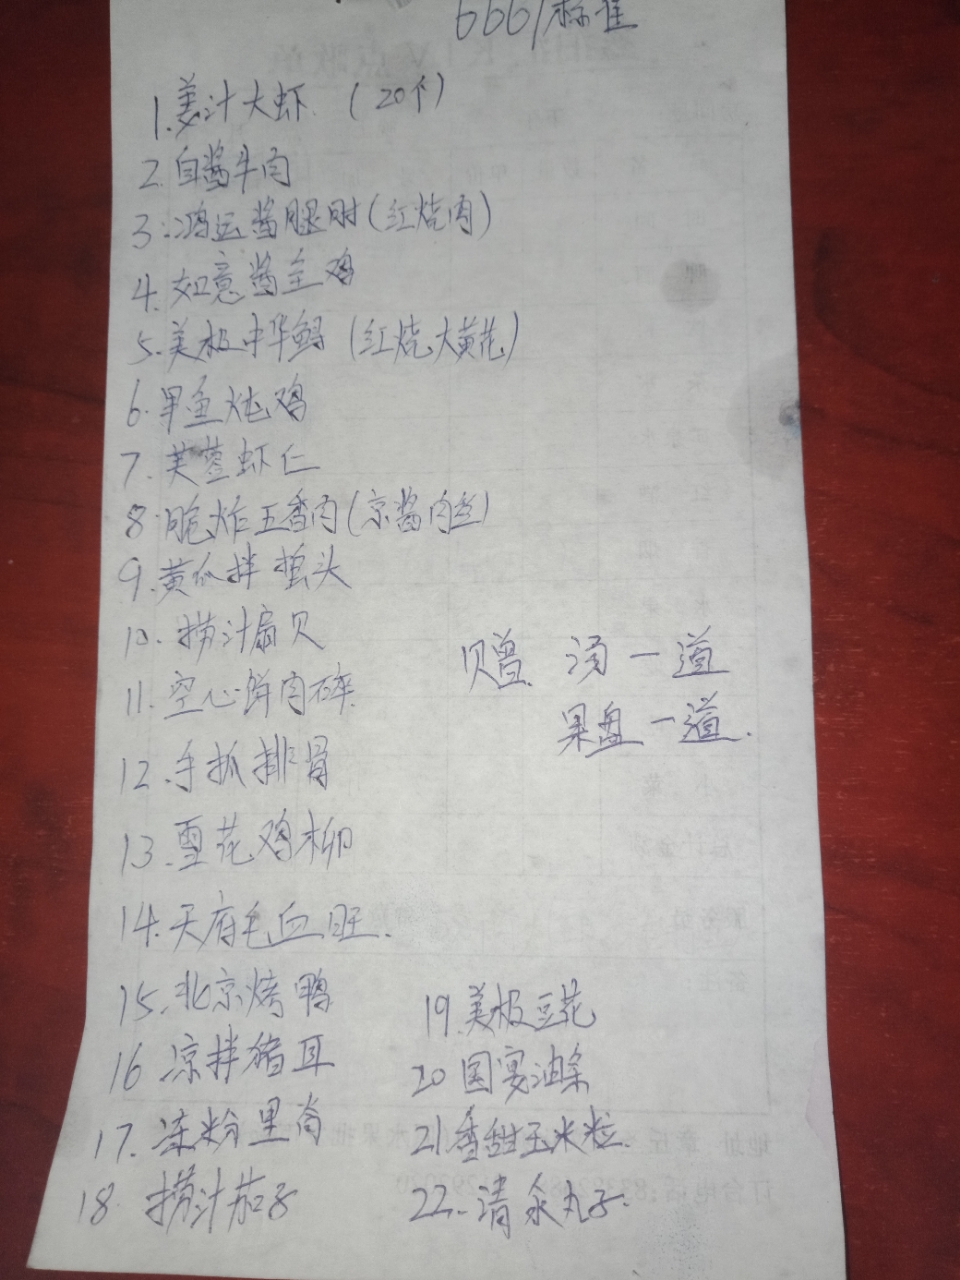 666/标准
1.姜汁大虾 (20个)
2.自酱牛肉
3.鸿运酱腿肘(红烧肉)
4.如意酱全鸡
5.美极中华鲟(红烧大黄花)
6.甲鱼炖鸡
7.芙蓉虾仁
8.脆炸五香肉(京酱肉丝)
9.黄瓜拌蜇头
10.捞汁扇贝
11.空心饼肉碎
12.手抓排骨
13.雪花鸡柳
14.天府毛血旺.
15.北京烤鸭
16 凉拌猪耳
17.冻粉里脊
18.捞汁茄子
赠 汤一道
果盘一道.
19.美极豆花
20 国宴油条
21.香甜玉米粒.
22.清汆丸子.